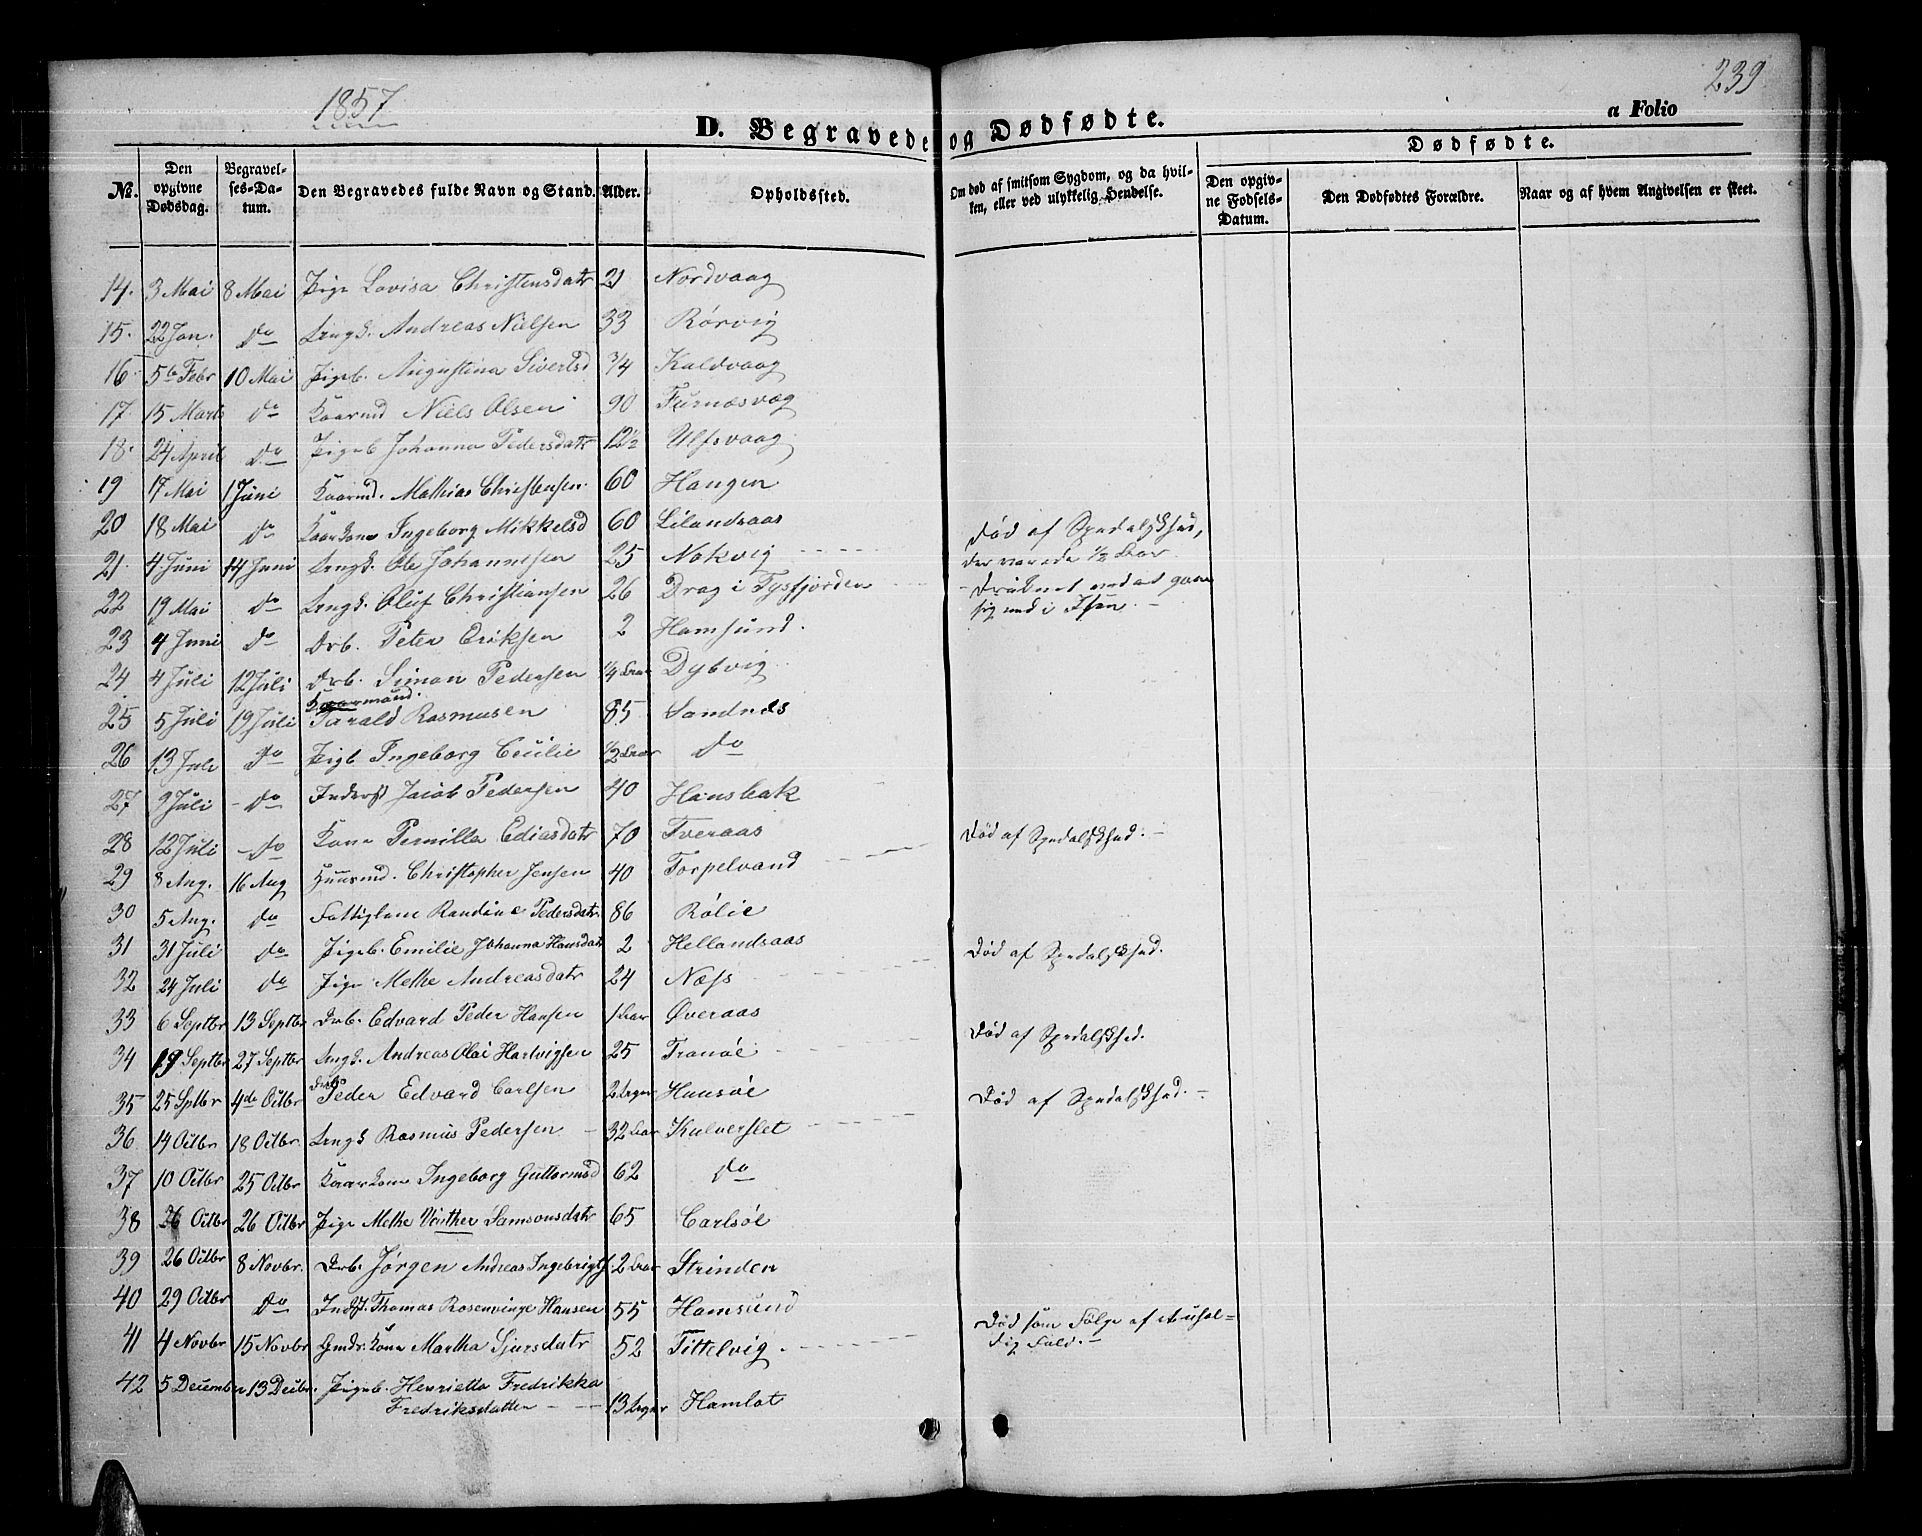 1857
239
D. Begravede og Dødfødte.
a Folio
Dødfødte.
No.
Den opgivne Dødsdag.
Begravelses-Datum.
Den Begravedes fulde Navn og Stand.
Alder.
Opholdssted.
Om død af smitsom Sygdom, og da hvilken, eller ved ulykkelig Hendelse.
Den opgivne Fødsels-Datum.
Den Dødfødtes Forældre.
Naar og af hvem Angivelsen er skeet.
14. 3 Mai 8 Mai Pige Lovisa Christensdatr 21 Nordvaag
15. 22 Jan. do Lngk. Andreas Nielsen 33 Rörvig
16 5te Febr 10 Mai Pigeb. Augustina Sivertsd 3/4 Kaldvaag
17. 15 Marts do Kaarmd Niels Olsen 90 Furnæsvæg
18. 24 April do Pigeb Johanna Pedersdatr 12½ Ulfsvaag
19 17 Mai 1 Juni Kaarmd. Mathias Christensen. 60 Haugen
20 18 Mai do Kaarkone Ingeborg Mikkelsd 60 Lilandsaas
21. 4 Juni 14 Juni Lngk. Ole Johannesen 25 Nokvig Död af Spedalskhed, der varede ½ Aar.
22 19 Mai do Lngk. Oluf Christiansen 26 Drag i Tysfjorden Druknet ved at gaae sig ned i Isen.
23 4 Juni do Drb. Peter Eriksen 2 Hamsund.
24 4 Juli 12 Juli Drb. Simon Pedersen 1/4 Aar Dybvig
25 5 Juli 19 Juli Kaarmand. Tarald Rasmusen 85 Sandnes
26 13 Juli do Pigb Ingeborg Cecilie 1/2 Aar do
27 9 Juli do Inderst Jacob Pedersen 40 Hansbak
28 12 Juli do Kone Pernilla Ediasdatr 70 Tveraas
29 8 Aug. 16 Aug Huusmd. Christopher Jensen 40 Torpelvand Död af Spedalskhed.
30 5 Aug. do Fattiglem Randine Pedersdatr. 86 Rölie
31 31 Juli do Pigeb. Emilie Johanna Hansdatr 2 Hellandsaas
32 24 Juli do Pige Methe Andreasdatr 24 Næss Död af Spedalskhed.
33 6 Septbr 13 Septbr Drb. Edvard Peder Hansen 1 Aar Øveraas
34 19 Septbr 27 Septbr Lngk. Andreas Olai Hartvigsen 25 Tranöe Död af Spedalskhed.
35 25 Sptbr 4de Octbr Drb. Peder Edvard Carlsen 2 Uger Hunsöe
36 14 Octbr 18 Octbr Lngk Rasmus Pedersen 32 Aar Kulverslet Död af Spedalskhed.
37 10 Octbr 25 Octbr Kaarkone Ingeborg Guttormsd 62 do
38 26 Octbr Pige Methe Samsonsdatr 65 Carlsöe
39 26 Octbr 8 Novbr. Drb. Jørgen Andreas Ingebrigts. 2 Aar Strinden
40 29 Octbr do Indst. Thomas Rosenvinge Hansen 55 Hamsund
41 4 Novbr 15 Novbr Gmdr. Kone Martha Sjursdatr 52 Tittelvig Död som Fölge af et uheldig Fald.
42 5 December 13 Decbr. Pigeb. Henrietta Fredrikka
Fredriksdatter 13 Uger Hamlot